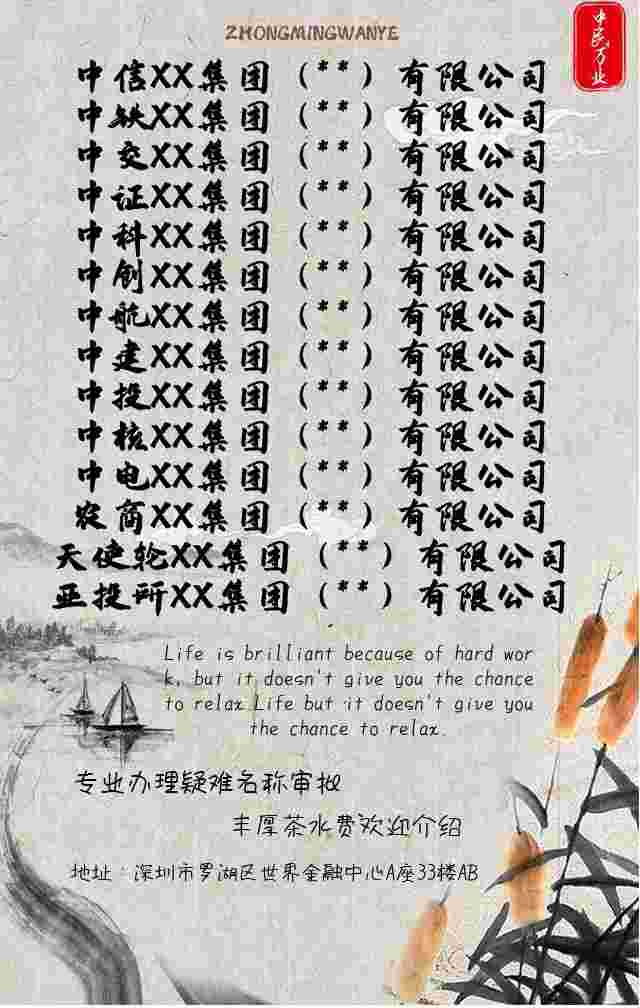 ZHONGMINGWANYE
中民万业
中信XX集团（**）有限公司
中铁XX集团（**）有限公司
中交XX集团（**）有限公司
中证XX集团（**）有限公司
中科XX集团（**）有限公司
中创XX集团（**）有限公司
中航XX集团（**）有限公司
中建XX集团（**）有限公司
中投XX集团（**）有限公司
中核XX集团（**）有限公司
中电XX集团（**）有限公司
农商XX集团（**）有限公司
天使轮XX集团（**）有限公司
亚投所XX集团（**）有限公司
Life is brilliant because of hard wor
k, but it doesn't give you the chance
to relax.Life but it doesn't give you
the chance to relax.
专业办理疑难名称审批
丰厚茶水费欢迎介绍
地址：深圳市罗湖区世界金融中心A座33楼AB